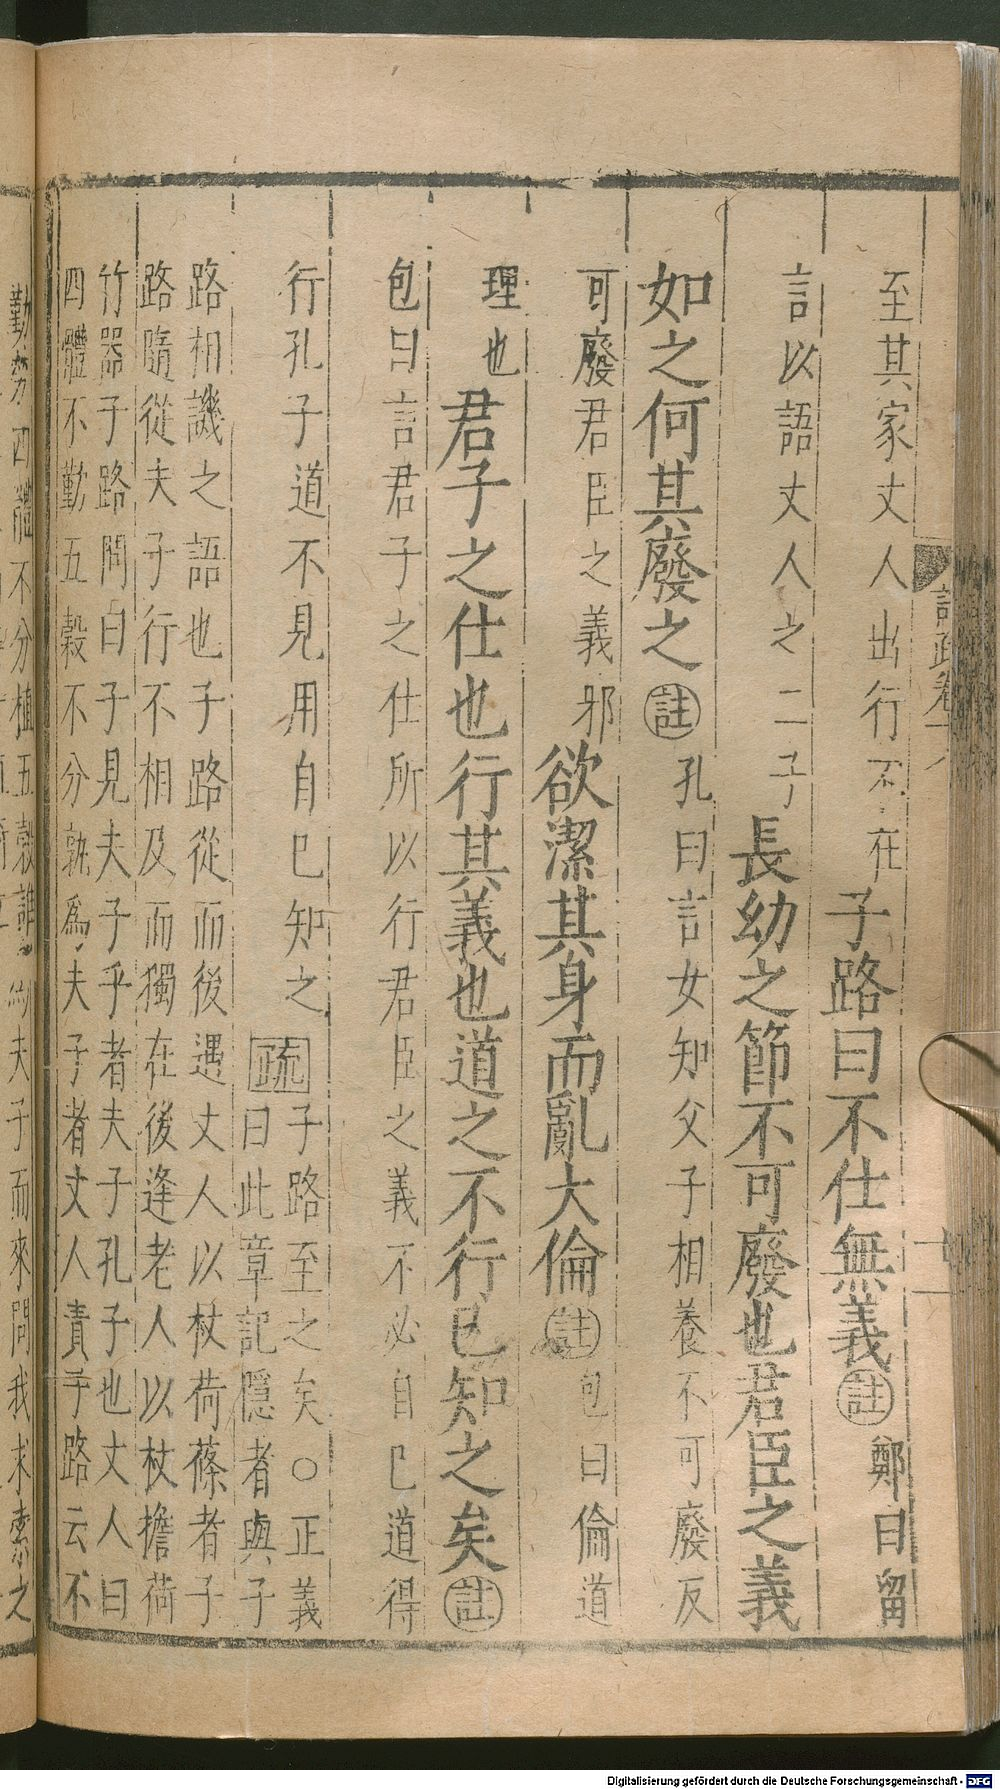 至其家丈人出行不在子路曰不仕無義註鄭曰留
言以語丈人之二子長幼之節不可廢也君臣之義
如之何其廢之註孔曰言女知父子相養不可廢反
可廢君臣之義邪欲潔其身而亂大倫註包曰倫道
理也君子之仕也行其義也道之不行已知之矣註
包曰言君子之仕所以行君臣之義不必自己道得
行孔子道不見用自已知之疏子路至之矣○正義
曰此章記隱者與子
路相譏之語也子路從而後遇丈人以杖荷蓧者子
路隨從夫子行不相及而獨在後逢老人以杖擔荷
竹器子路問曰子見夫子乎者夫子孔子也丈人曰
四體不勤五穀不分孰爲夫子者丈人責子路云不
勤勞四體不分植五穀誰爲夫子而來問我求索之
Digitalisierung gefördert durch die Deutsche Forschungsgemeinschaft - DFG